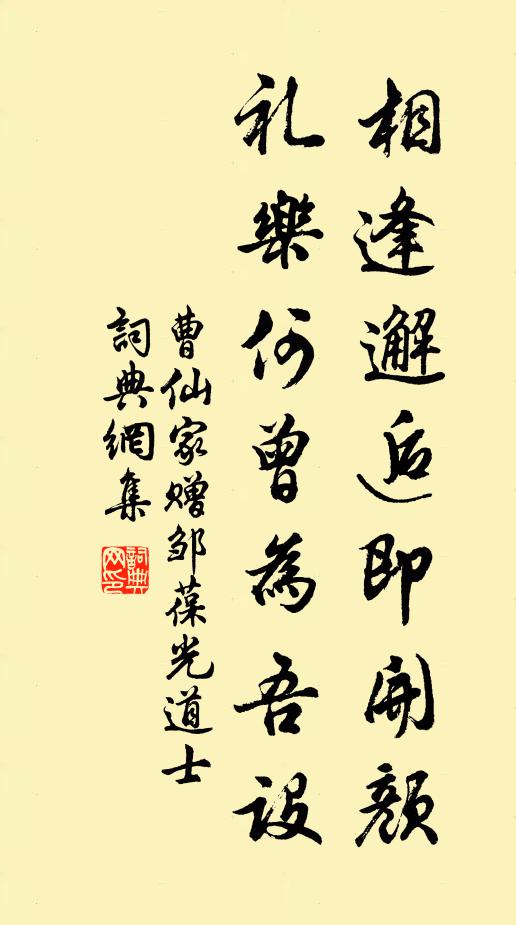 相逢邂逅即開顏
礼樂何曾為吾設
曹仙家赠邹葆光道士
詞典網集
詞典网印